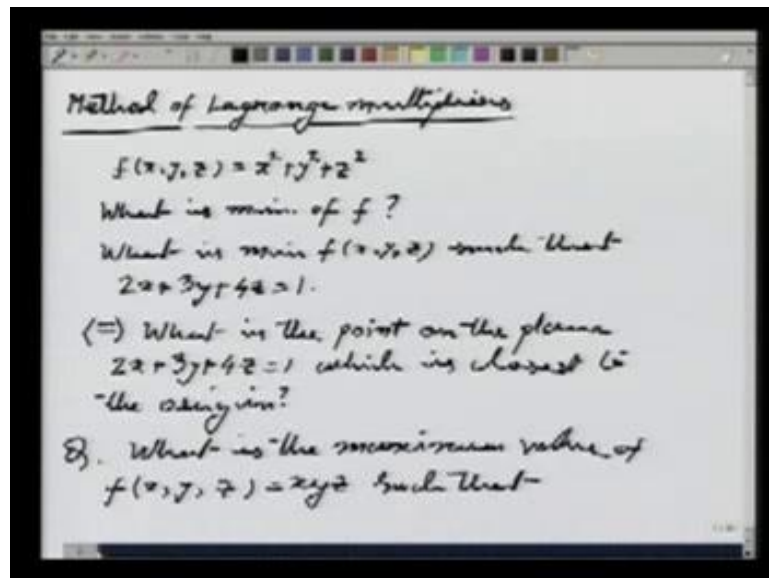 Method of Lagrange multipliers
f(x,y,z) = x²+y²+z²
What is min. of f ?
What is min f(x,y,z) such that
2x+3y+4z=1.
(=) What is the point on the plane
2x+3y+4z=1 which is closest to
the origin?
Q. What is the maximum value of
f(x,y,z)=xyz such that